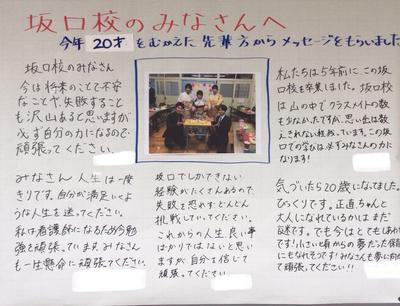 坂口校のみなさんへ
今年20才をむかえた先輩方からメッセージをもらいました
坂口校のみなさん
今は将来のことで不安
なことや、失敗すること
も沢山あると思いますが
必ず自分の力になるので
頑張ってください。
私たちは5年前に、この坂
口校を卒業しました。坂口校
は山の中でクラスメイトの数
も少なかったですが、思い出は数
えきれない程残っています。この坂
口での学びは必ずみんなの力に
なります!
みなさん人生は一度
きりです。自分が満足いくよ
うな人生を送ってください。
私は看護師になるため今勉
強を頑張っています。みなさん
も一生懸命に頑張ってください。
坂口でしかできない
経験がたくさんあるので、
失敗を恐れずどんどん
挑戦していってください。
これからの人生、良い事
ばかりではないと思い
ますが、自分を信じて
頑張ってください
気づいたら20歳になってました。
びっくりです。正直ちゃんと
大人になれているかはまだ
謎です。でも今はとてもしあわせ
です!小さい頃からの夢だった保育士
にもなれそうです!みんなも夢に向かっ
て頑張ってください!!